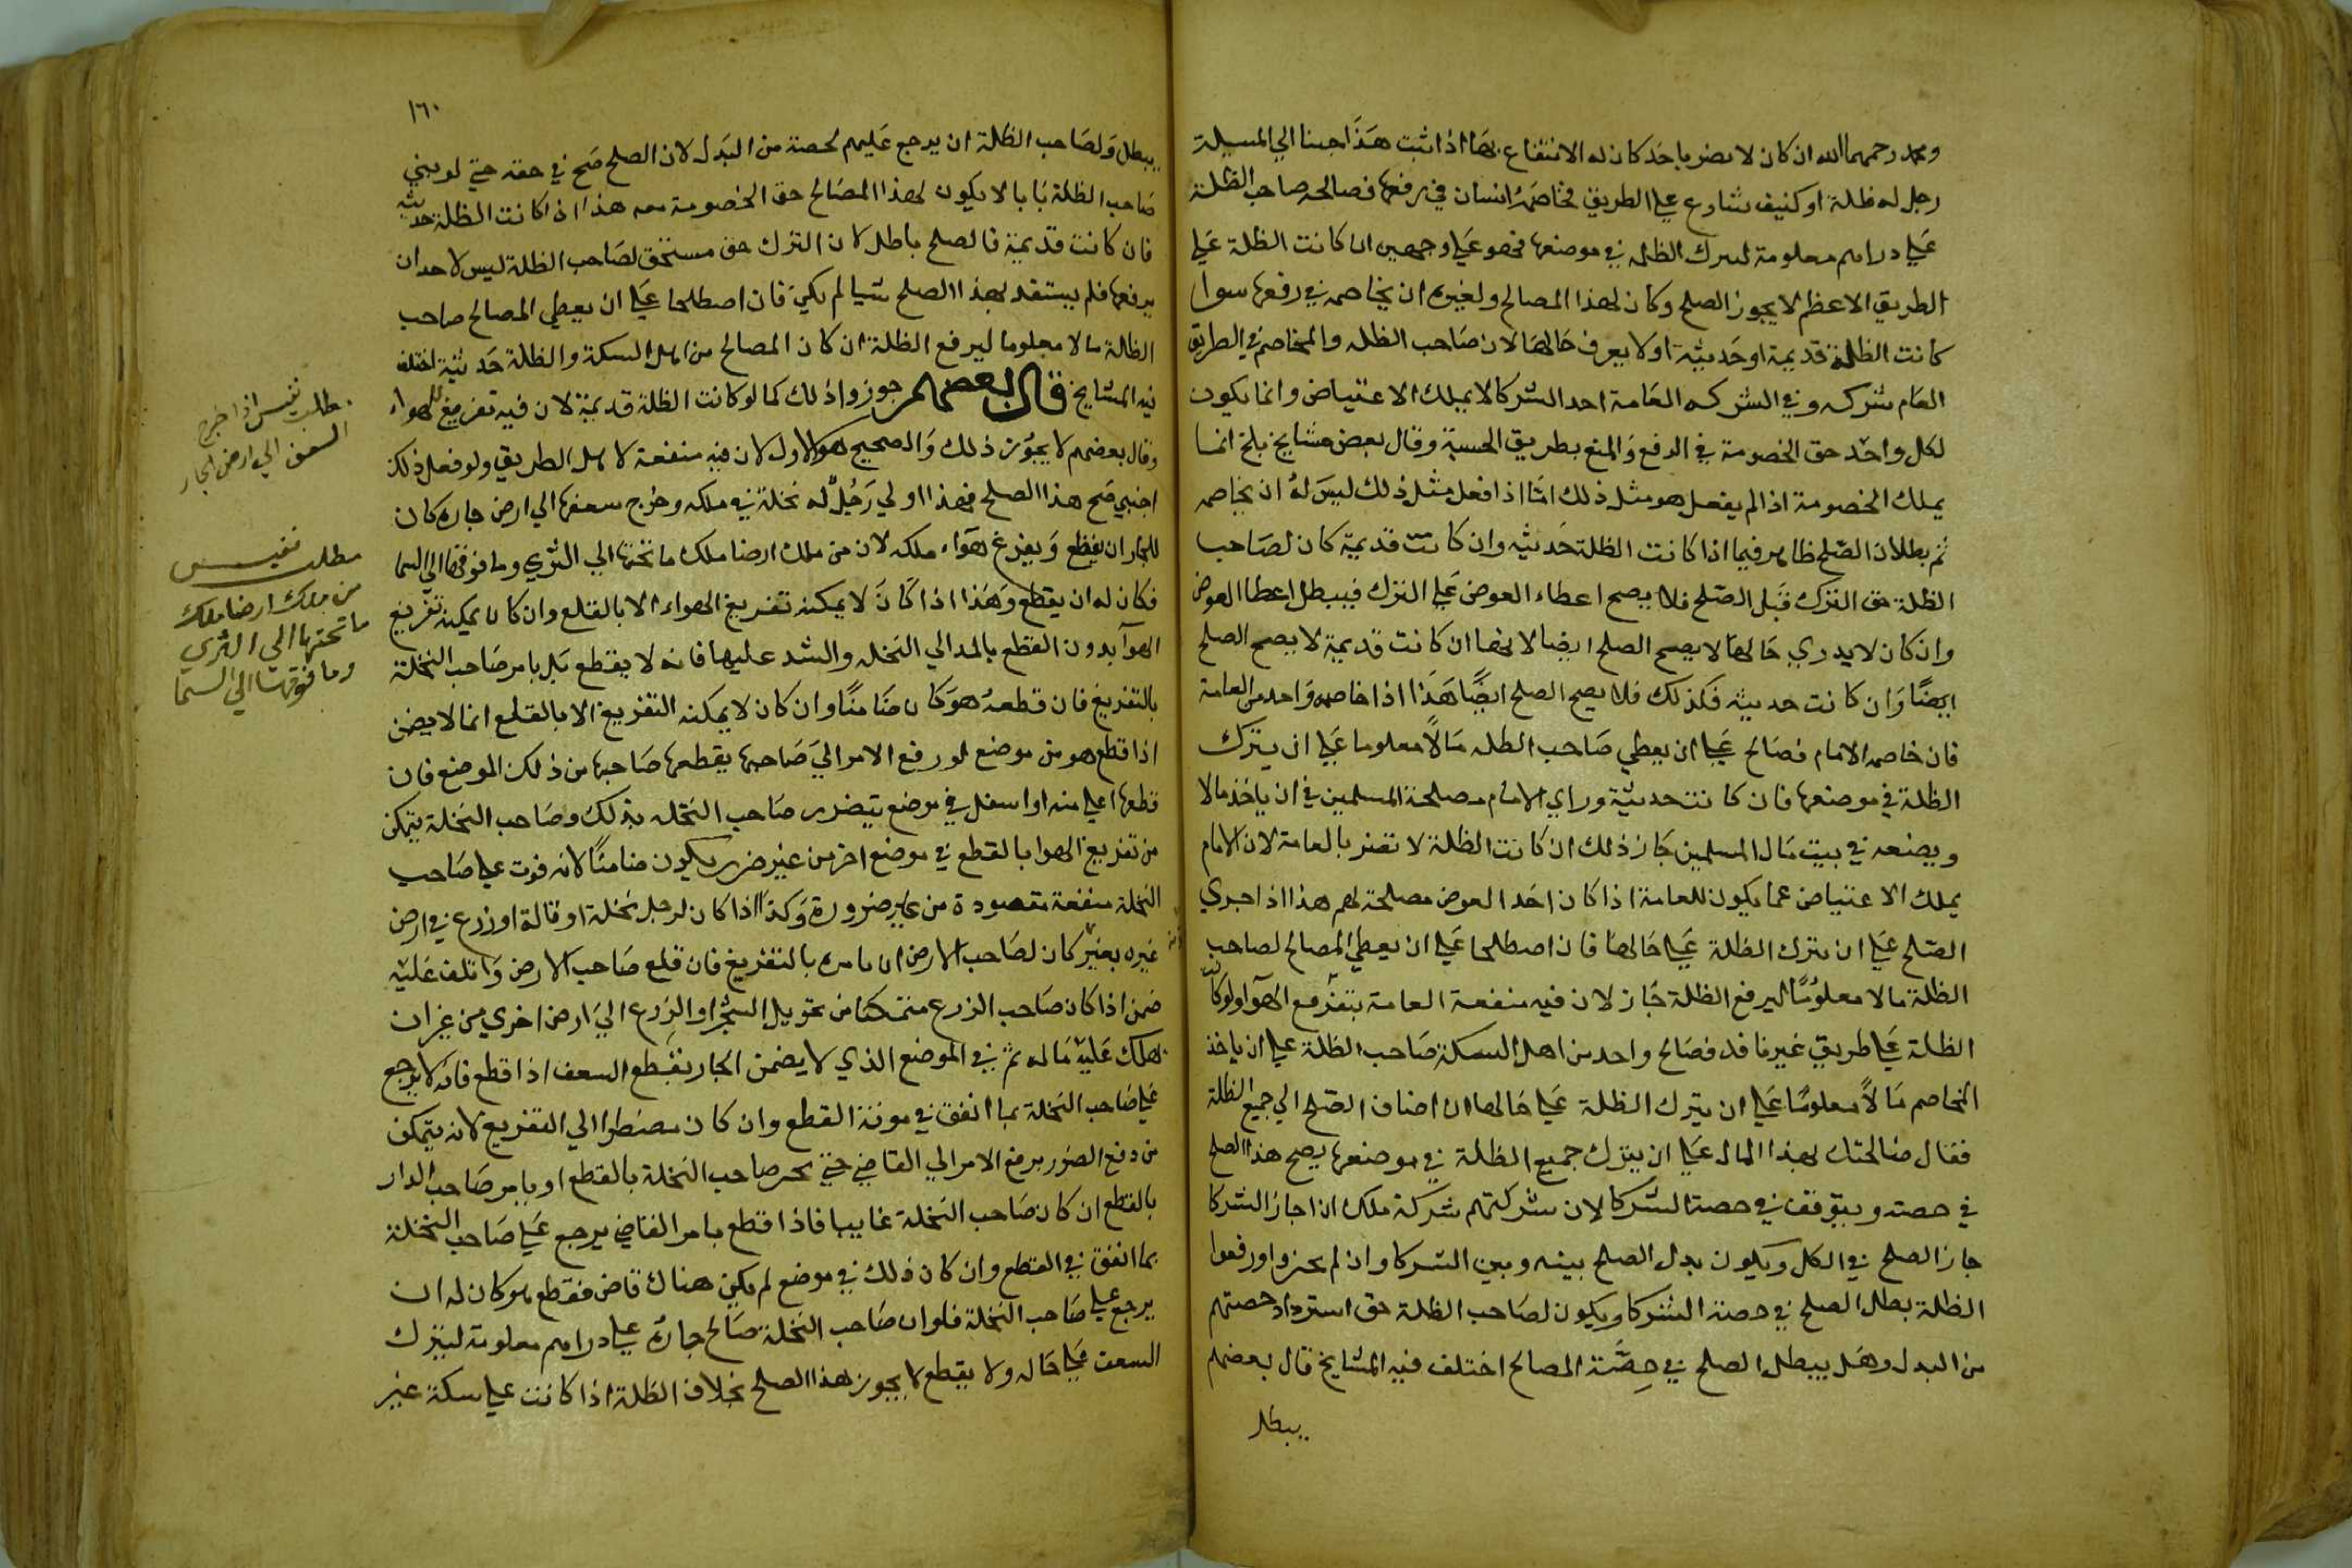 ومحمد رحمهما الله ان كان لا يضر باحد كان له الانتفاع بها اذا ثبت هذا جينا الي المسيلة
رجل له ظلة او كنيف شارع علي الطريق فخاصمه انسان في رفعها فصالحه صاحب الظلة
علي دراهم معلومة ليترك الظله في موضعها فهو علي وجهين ان كانت الظلة علي
الطريق الاعظم لا يجوز الصلح وكان لهذا المصالح ولغيره ان يخاصمه في رفعها سوا
كانت الظلة قديمة او حديثة او لا يعرف حالها لان صاحب الظله والمخاصم في الطريق
العام شركه وفي الشركه العامة احد الشركا لا يملك الاعتياض وانما يكون
لكل واحد حق الخصومة في الدفع والمنع بطريق الحسبة وقال بعض مشايخ بلخ انما
يملك الخصومة اذا لم يفعل هو مثل ذلك امّا اذا فعل مثل ذلك ليس له ان يخاصمه
ثم بطلان الصلح ظاهر فيما اذا كانت الظلة حديثه وان كانت قديمة كان لصاحب
الظلة حق الترك قبل الصلح فلا يصح اعطاء العوض علي الترك فيبطل اعطا العوض
وان كان لا يدري حالها لا يصح الصلح ايضا لانها ان كانت قديمة لا يصح الصلح
ايضًا وان كانت حديثه فكذلك فلا يصح الصلح ايضًا هذا اذا خاصمه واحد من العامة
فان خاصمه الامام فصالح علي ان يعطي صاحب الظله مالًا معلوما علي ان يترك
الظلة في موضعها فان كانت حديثة وراي الامام مصلحة المسلمين في ان ياخذ مالا
ويضعه في بيت مال المسلمين جاز ذلك ان كانت الظلة لا تضر بالعامة لان الامام
يملك الاعتياض عما يكون للعامة اذا كان اخذ العوض مصلحة لهم هذا اذا جري
الصلح علي ان يترك الظلة علي حالها فان اصطلحا علي ان يعطي المصالح لصاحب
الظلة مالا معلومًا ليرفع الظلة جاز لان فيه منفعة العامة بتفريغ الهوآ ولو كانت
الظلة علي طريق غير نافد فصالح واحد من اهل السكة صاحب الظلة علي ان ياخذ
المخاصم مالًا معلومًا علي ان يترك الظلة علي حالها ان اضاف الصلح الي جميع الظلة
فقال صالحتك لهذا المال علي ان يترك جميع الظلة في موضعها يصح هذا الصلح
في حصته ويتوقف في حصة الشركا لان شركتهم شركة ملك ان اجاز الشركا
جاز الصلح في الكل ويكون بدل الصلح بينه وبين الشركا وان لم يجيزوا ورفعوا
الظلة بطل الصلح في حصة الشركا ويكون لصاحب الظلة حق استرداد حصتهم
من البدل وهل يبطل الصلح في حصّة المصالح اختلف فيه المشايخ قال بعضهم
يبطل
١٦٠
يبطل ولصاحب الظلة ان يرجع عليهم لحصة من البدل لان الصلح صح في حقه حتي لو بني
صاحب الظلة بابا لا يكون لهذا المصالح حق الخصومة معه هذا اذا كانت الظلة حديثه
فان كانت قديمة فالصلح باطل لان الترك حق مستحق لصاحب الظلة ليس لاحد ان
يرفعها فلم يستفد بهذا الصلح شيا لم يكن فان اصطلحا علي ان يعطي المصالح صاحب
الظالة مالا معلوما ليرفع الظلة ان كان المصالح من اهل السكة والظلة حديثة اختلف
فيه المشايخ قال بعضهم جوزوا ذلك كما لو كانت الظلة قديمة لان فيه تفريغ للهواء
وقال بعضهم لا يجوز ذلك والصحيح هو الاول لان فيه منفعة لاهل الطريق ولو فعل ذلك
اجنبي صح هذا الصلح فهذا اولي رجلٌ له نخلة في ملكه وخرج سعفها الي ارض جاره كان
للجار ان يقطع ويفرغ هواء ملكه لان من ملك ارضا ملك ما تحتها الي الثري وما فوقها الي السما
فكان له ان يقطع وهذا اذا كان لا يمكنه تفريغ الهواء الا بالقلع وان كان يمكنه تفريغ
الهوآ بدون القطع بالمد الي النخله والشد عليها فانه لا يقطع بل يامر صاحب النخلة
بالتفريغ فان قطعه هو كان ضامنًا وان كان لا يمكنه التفريغ الا بالقلع انما لا يضمن
اذا قطع هو من موضع لو رفع الامر الي صاحبها يقطعها صاحبها من ذلك الموضع فان
قطعها اعلي منه او اسفل في موضع يتضرر صاحب النخله بذلك وصاحب النخلة يتمكن
من تفريغ الهوا بالقطع في موضع اخر من غير ضرر يكون ضامنًا لانه فوت علي صاحب
النخلة منفعة مقصودة من غير ضرورة وكذا اذا كان لرجل نخلة او قالة او زرع في ارض
غيره بغير كان لصاحب الارض ان يامره بالتفريغ فان قلع صاحب الارض واتلف عليه
ضمن اذا كان صاحب الزرع متمكنا من تحويل الشجر او الزرع الي ارض اخري من غير ان
يهلك عليه ماله ثم في الموضع الذي لا يضمن الجار بقطع السعف اذا قطع فانه لا يرجع
علي صاحب النخلة بما انفق في مونة القطع وان كان مضطرا الي التفريغ لانه يتمكن
من دفع الضرر برفع الامر الي القاضي حتي يجبر صاحب النخلة بالقطع او يامر صاحب الدار
بالقطع ان كان صاحب النخلة غايبا فاذا قطع بامر القاضي يرجع علي صاحب النخلة
بما انفق في القطع وان كان ذلك في موضع لم يكن هناك قاض فقطع هو كان له ان
يرجع علي صاحب النخلة فلو ان صاحب النخلة صالح جاره علي دراهم معلومة ليترك
السعف علي حاله ولا يقطع لا يجوز هذا الصلح بخلاف الظلة اذا كانت علي سكة غير
مطلب نفيس اذا خرج
السعف الي ارض الجار
مطلب نفيس
من ملك ارضا ملك
ما تحتها الي الثري
وما فوقها الي السما